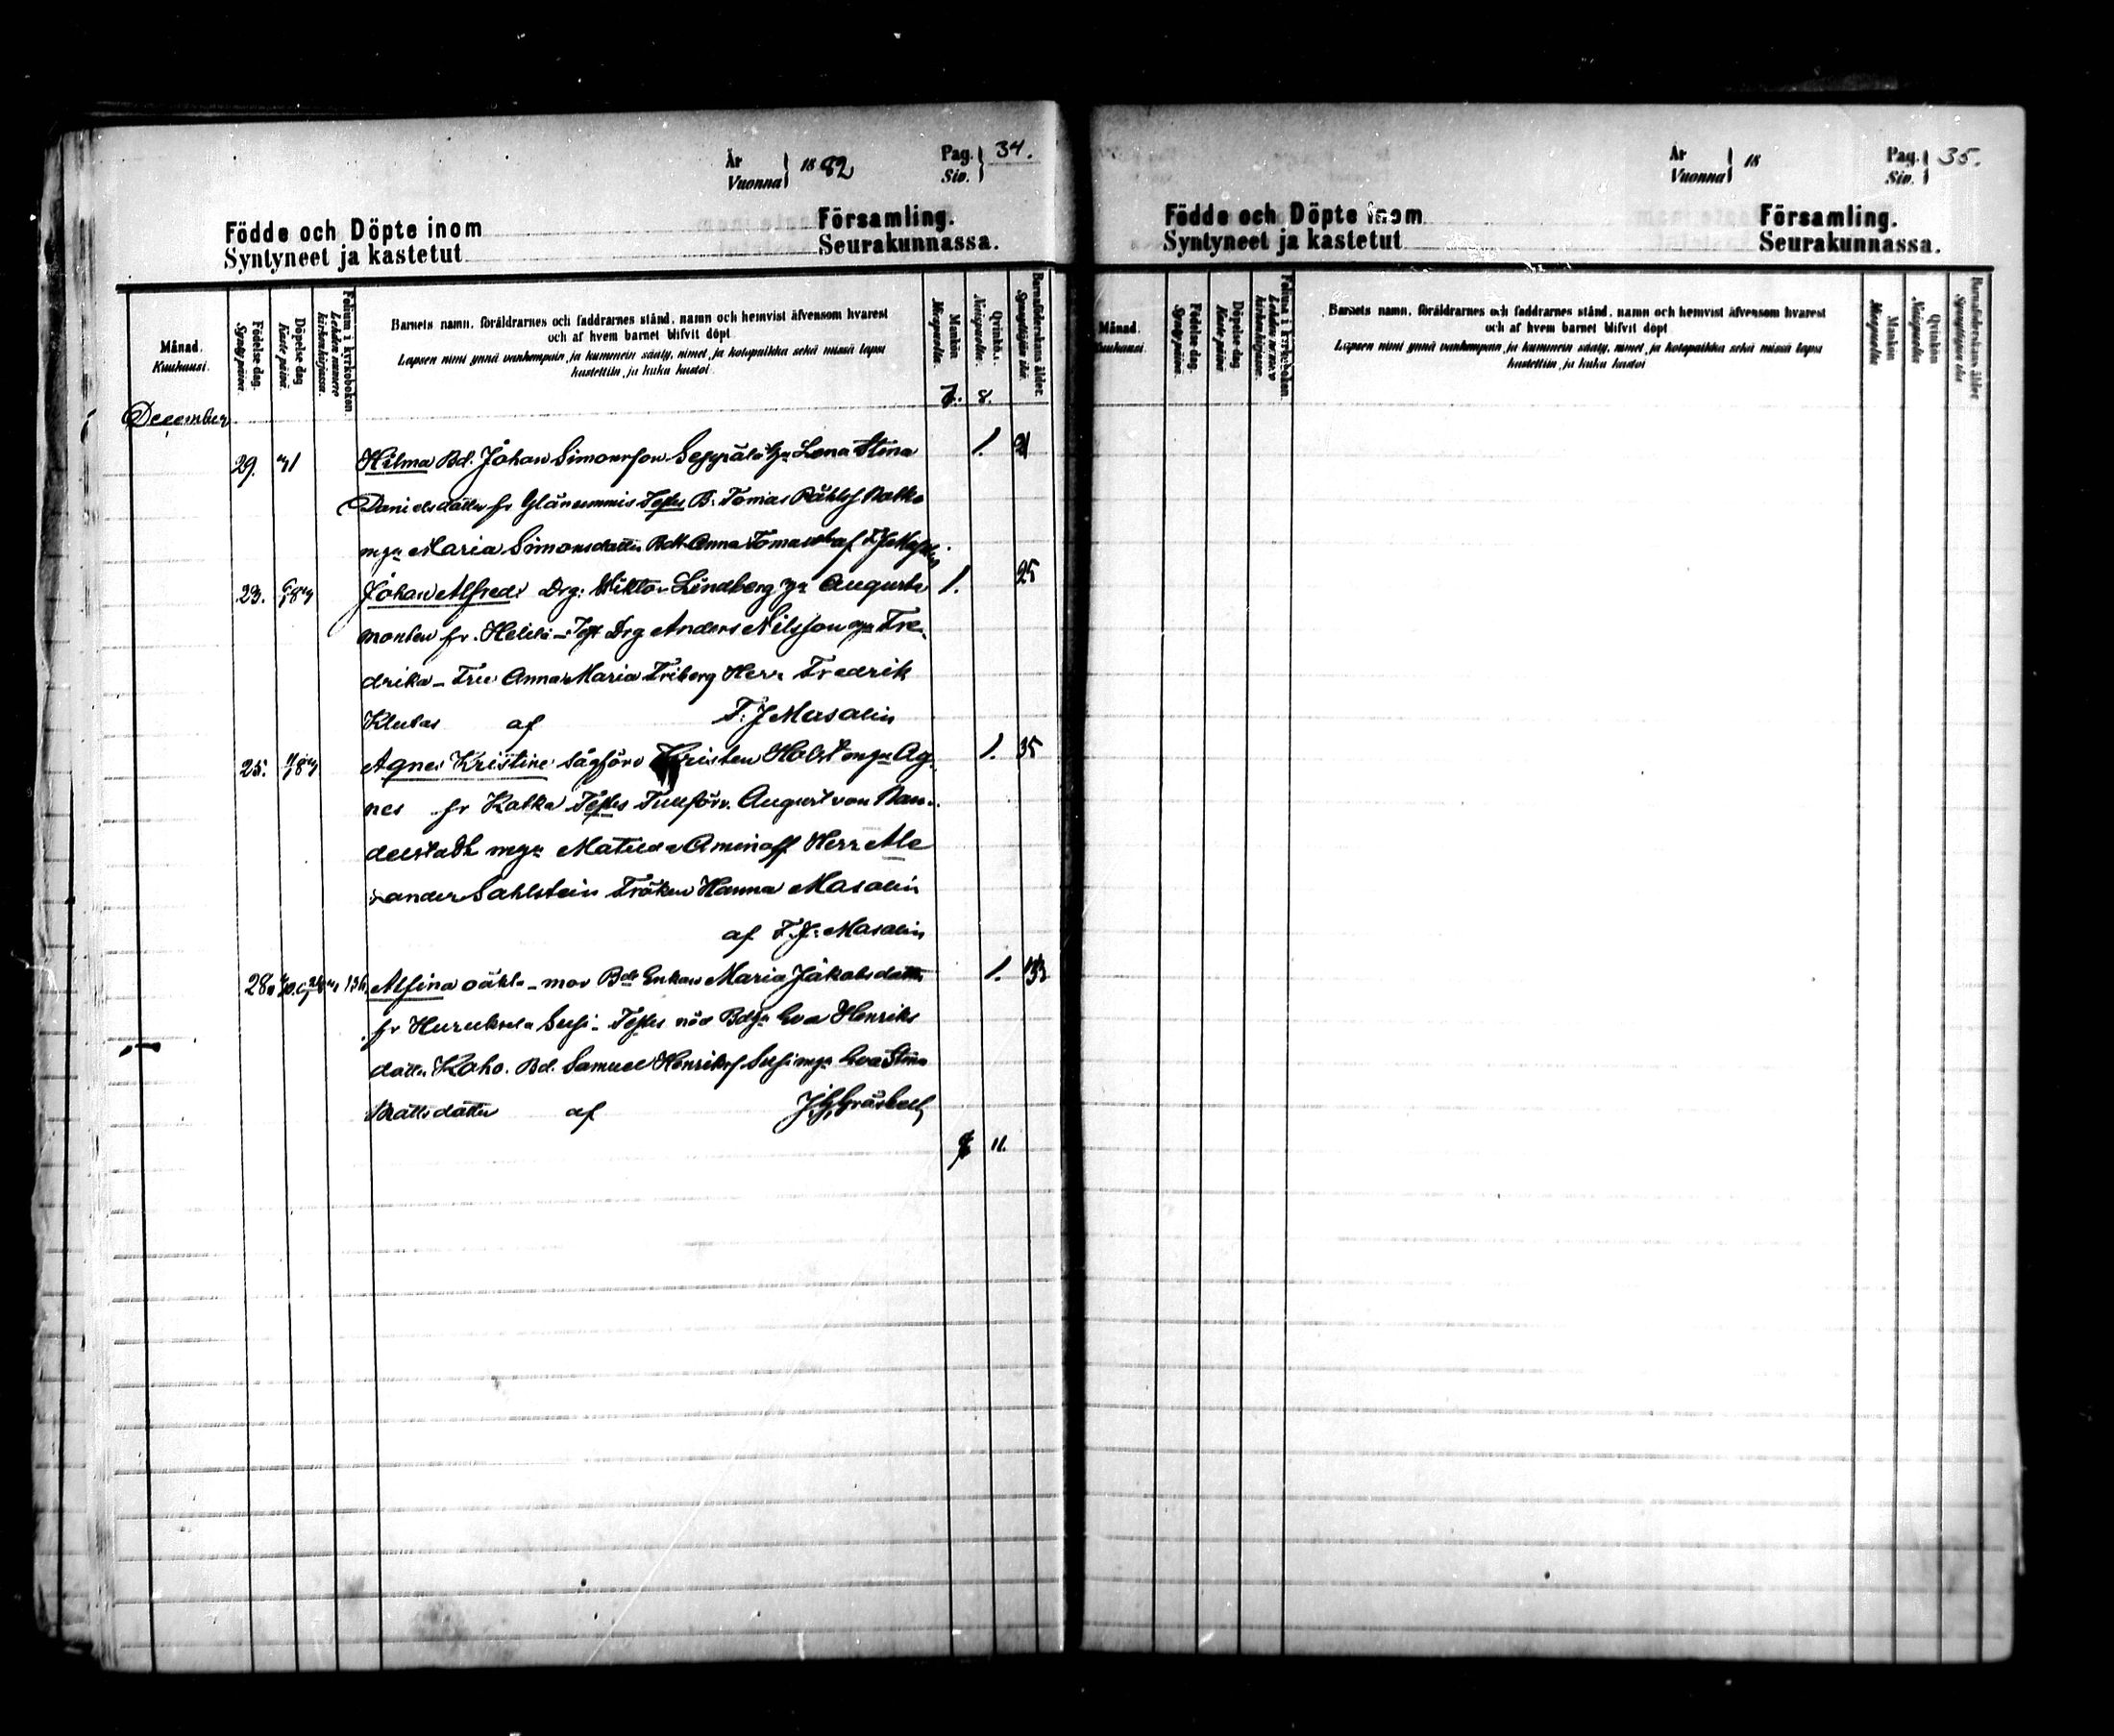 År
Vuonna 1882 Pag. Siv. 34.
Födde och Döpte inom Församling.
Syntyneet ja kastetut Seurakunnassa.
Månad. Kuukausi. Födelse dag. Syntymäpäivä. Döpelse dag Kaste päivä. Folium i kyrkoboken. Lehden numero kirkonkirjassa.
Barnets namn, föräldrarnes och faddrarnes stånd, namn och hemvist äfvensom hvarest
och af hvem barnet blifvit döpt
Lapsen nimi ynnä vanhempain ja kummein sääty, nimet ja kotopaikka sekä missä lapsi
kastettiin ja kuka kastoi
Mankön Miespuolta. Qvinkön. Naispuolta. Barnaföderskans ålder.
7. 8.
December
29. 31 Hilma Bd. Johan Simonsson Seppälä Lena Stina 1. 21
Danielsdotter fr Testes B. Tomas
mga Maria Simonsdotter Anna af
23. Johan Alfred Drg. Wiktor Lindberg Augusta 1. 25
fr. Drg Anders Nilsson Fre-
drika – Fru Anna Maria Friberg Herr Fredrik
Klubas af F. J Masalin
25. Agnes Kristine Kristen Holst mga Ag- 1. 35
nes fr Kotka Testes August von
mga Matilda Aminoff Herr Ale
xander Sahlstein Fröken Hanna Masalin
af F. J. Masalin
28. 136. Alfina oäkta – mor Enkan Maria Jakobsdotter 1. 33
fr Huruksela Susi – Testes Eva Henriks
dotter Kaho. Bd. Samuel Henrikss Susi mga Eva Stina
Mattsdotter af
11.
År
Vuonna 18 Pag. Siv. 35.
Födde och Döpte inom Församling.
Syntyneet ja kastetut Seurakunnassa.
Månad. Kuukausi. Födelse dag. Syntymäpäivä. Döpelse dag Kaste päivä. Folium i kyrkoboken. Lehden numero kirkonkirjassa.
Barnets namn, föräldrarnes och faddrarnes stånd, namn och hemvist äfvensom hvarest
och af hvem barnet blifvit döpt
Lapsen nimi ynnä vanhempain ja kummein sääty, nimet ja kotopaikka sekä missä lapsi
kastettiin ja kuka kastoi
Mankön Miespuolta Qvinkön Naispuolta Barnaföderskans ålder